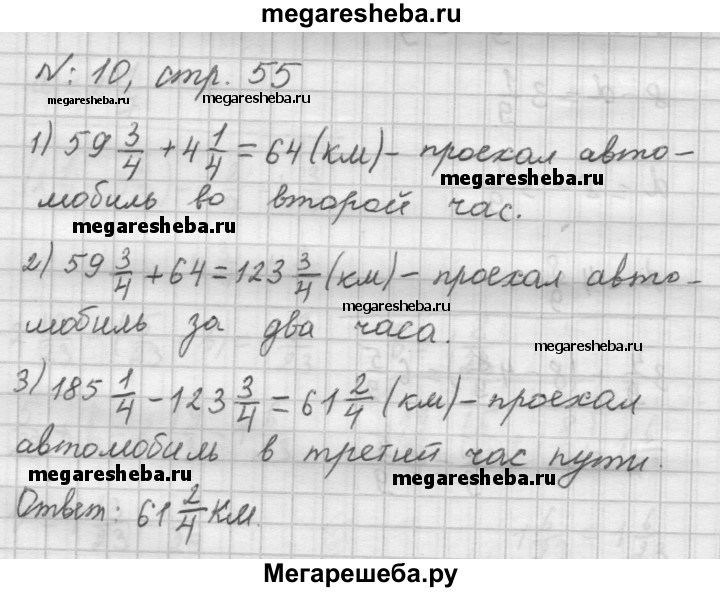 megaresheba.ru
№: 10, стр. 55
megaresheba.ru megaresheba.ru
1) 59 3/4 + 4 1/4 = 64 (км) – проехал авто-
megaresheba.ru
мобиль во второй час.
megaresheba.ru
2) 59 3/4 + 64 = 123 3/4 (км) – проехал авто-
megaresheba.ru
мобиль за два часа.
megaresheba.ru
3) 185 1/4 – 123 3/4 = 61 2/4 (км) – проехал
автомобиль в третий час пути.
megaresheba.ru megaresheba.ru
Ответ: 61 2/4 км.
Мегарешеба.ру